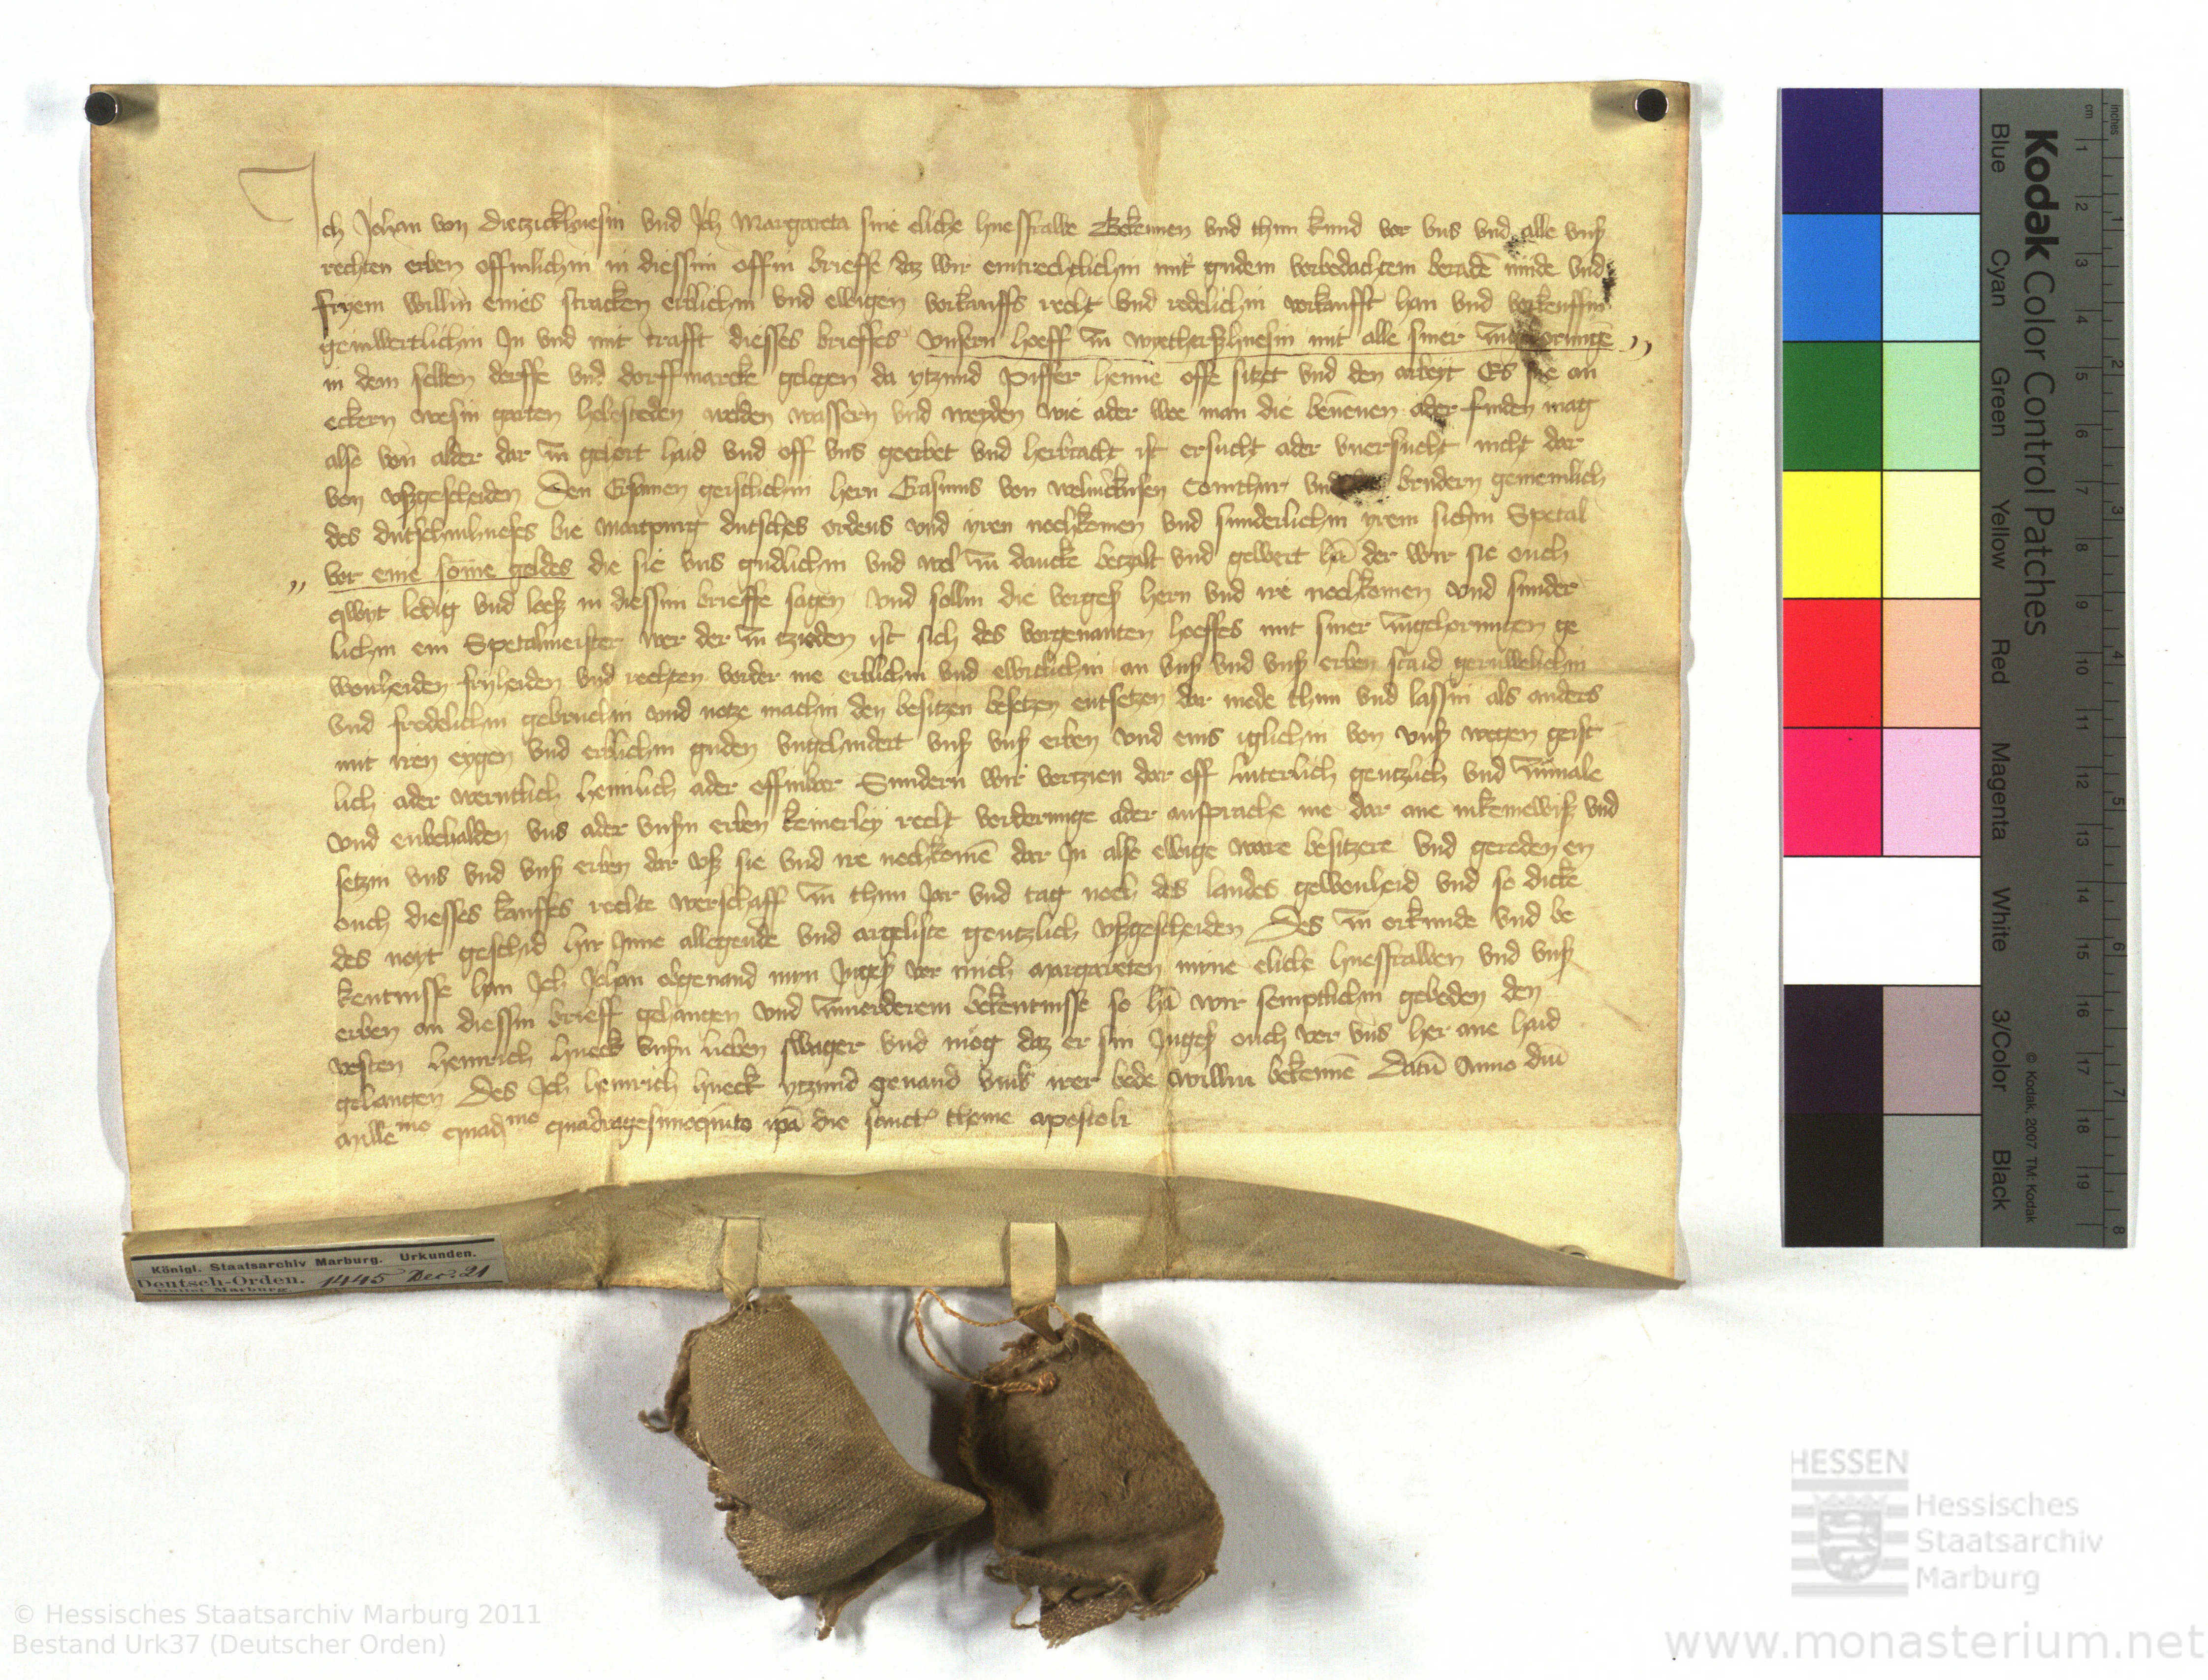 Ich Johan von Dietzickhusin vnd Ich Margareta sine eliche husffrawe Bekennen vnd thun kund vor vns vnd alle vnß
rechten erben offinlichin in diessim offin brieffe daz wir eintrechtlichin mit gudem vorbedachtem beradē mude vnd
fryem willin eines stracken erblichin vnd ewigen vorkauffs recht vnd redelichin vorkaufft han vnd vorkeuffin
geinwertlichin In vnd mit crafft diesses brieffes vnsern hoeff zu
in dem selben dorffe vnd dorffmarcke gelegen da ytzund Piffer Henne offe sitzet vnd den arbeyt Es sie an
eckern wesin garten hobesteden welden wassern vnd weyden wie ader woe man die benēnen ader finden mag
also von alder dar zu gehort haid vnd off vns geerbet vnd herbracht ist ersucht ader vnersucht nicht dar
von vßgescheiden Den Ersamen geistlichin hern von Comthur vnd brudern gemeinlich
des dutschinhuses bie Martpurg dutsches ordens vnd yren nochkomen vnd sunderlichin yrem sichin Spetal
vor eine some geldes die sie vns gudlichin vnd wol zu dancke betzalt vnd gewert hā der wir sie ouch
qwyt ledig vnd loeß in diessim brieffe sagen vnd sollin die vorgeß hern vnd ire nochkomen vnd sunder
lichin ein Spetalmeister wer der zu tzieden ist sich des vorgenanten hoeffes mit siner zugehorungen ge
wonheiden fryheiden vnd rechten vorder me erblichin vnd ewiclichin an vnß vnd vnß erben staid geruwelichin
vnd fredelichin gebruchin vnd notze machin den besitzen besetzen entsetzen dar mede thun vnd lassin als anders
mit iren eygen vnd erblichin guden vngehindert vnß vnß erben vnd eins iglichin von vnß wegen geist
lich ader werntlich heimlich ader offinbar Sundern wir vertzien dar off luterlich gentzlich vnd zumale
vnd enbehalden vns ader vnsßn erben keinerley recht vorderunge ader ansprache me dar ane inkeinewiß vnd
setzin vns vnd vnß erben dar vß sie vnd ire nochkomē dar In also ewige ware besitzere vnd gereden en
ouch diesses kauffes rechte werschaff zu thun Jar vnd tag noch des landes gewonheid vnd so dicke
des noyt geschid hir Inne allegeuerde vnd argeliste gentzlich vßgescheiden Des zu orkunde vnd be
kentnisse han Ich Johan obgenand myn Ingeß vor mich Margareten myne eliche husffrawen vnd vnß
erben an diessin brieff gehangen vnd zumerderem bekentnisse so hā wir semptlichin gebeden den
vesten Heinrich Hueck vnsßn lieben swager vnd mog daz er sin Ingeß ouch vor vns her ane haid
gehangen Des Ich Heinrich Hueck ytzund genand vmb irer bede willin bekennē Datū Anno dnī
Millemo quadmo quadragesimoquīto ipā die sancti thome apostoli
Königl. Staatsarchiv Marburg. Urkunden.
Deutsch-Orden. 1445 Dec. 21
Kodak Color Control Patches
Blue Cyan Green Yellow Red Magenta White 3/Color Black
© Kodak, 2007 TM: Kodak
inches 1 2 3 4 5 6 7 8
cm 1 2 3 4 5 6 7 8 9 10 11 12 13 14 15 16 17 18 19
HESSEN
Hessisches
Staatsarchiv
Marburg
© Hessisches Staatsarchiv Marburg 2011
Bestand Urk37 (Deutscher Orden)
www.monasterium.net